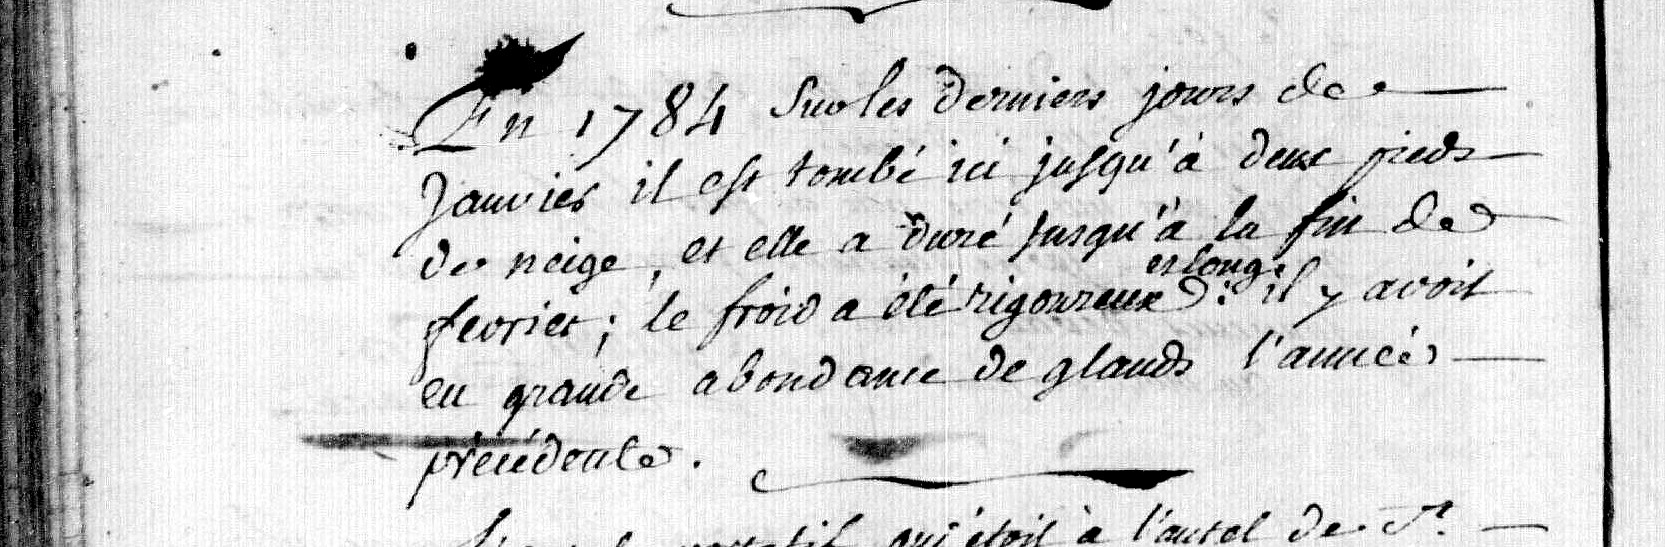 En 1784 Sur les derniers jours de
Janvier il est tombé ici jusqu'à deux pieds
de neige, et elle a duré jusqu'à la fin de
fevrier; le froid a été rigoureux et long: il y avoit
eu grande abondance de glands l'année
précédente.
qui étoit à l'autel de St.